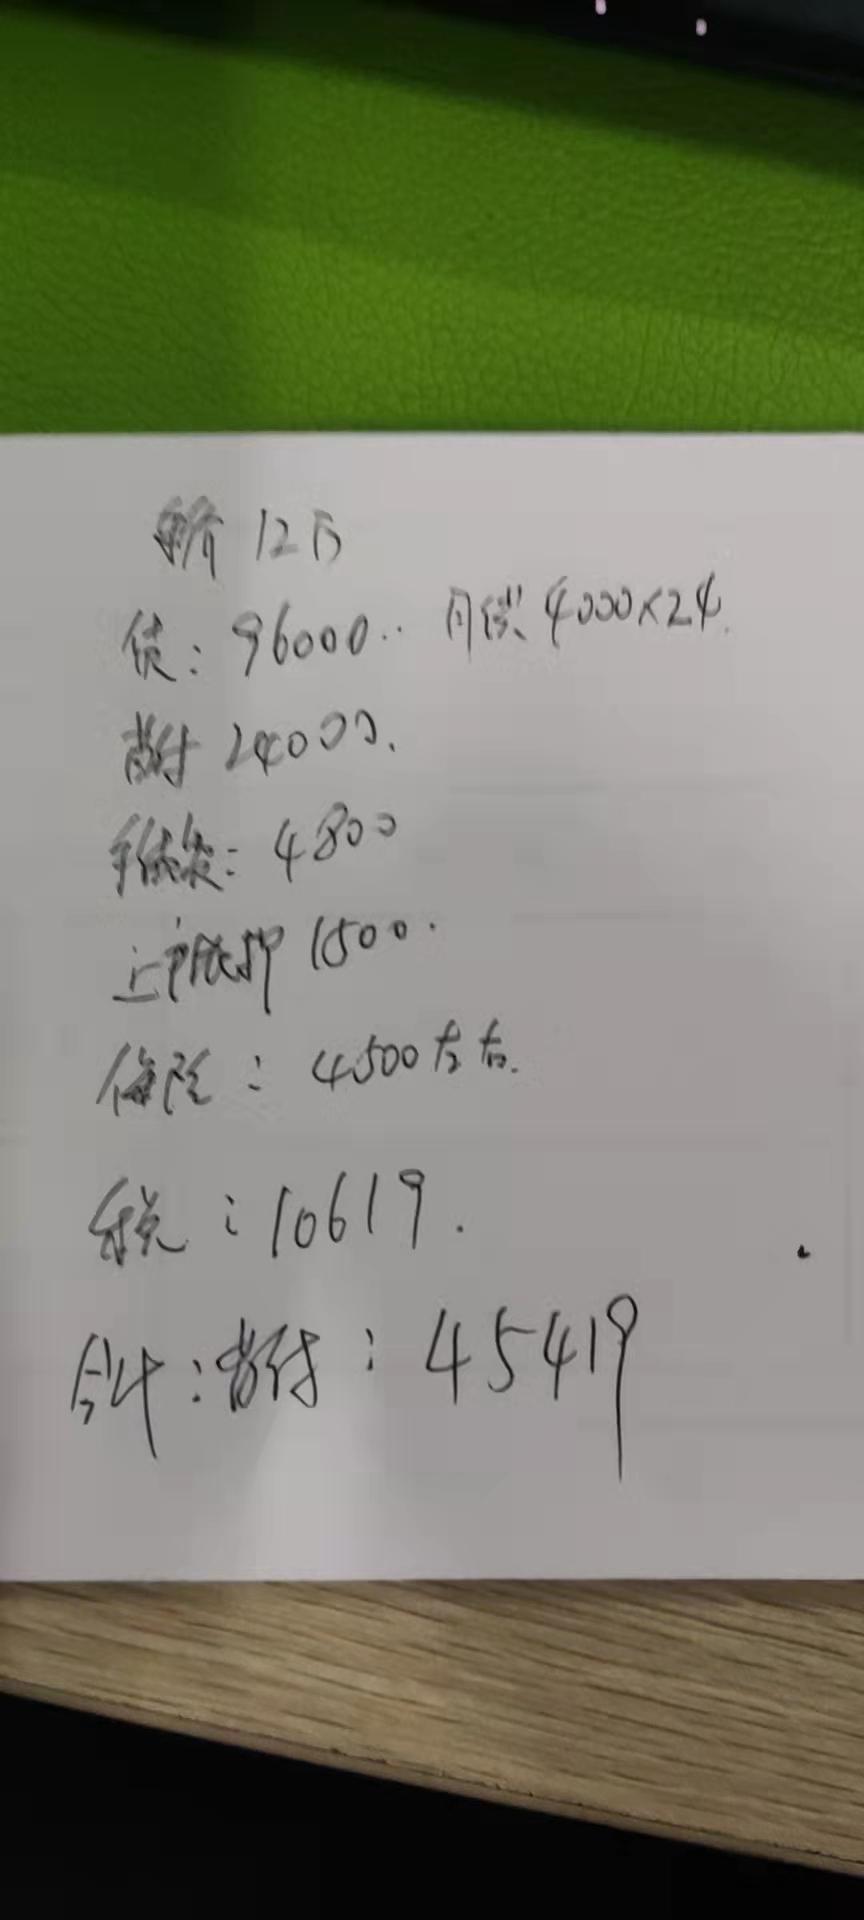 车价 12万
贷：96000.. 月供 4000×24.
首付 24000.
手续费：4800
上户抵押 1500.
保险：4500左右.
税：10619.
合计：首付：45419